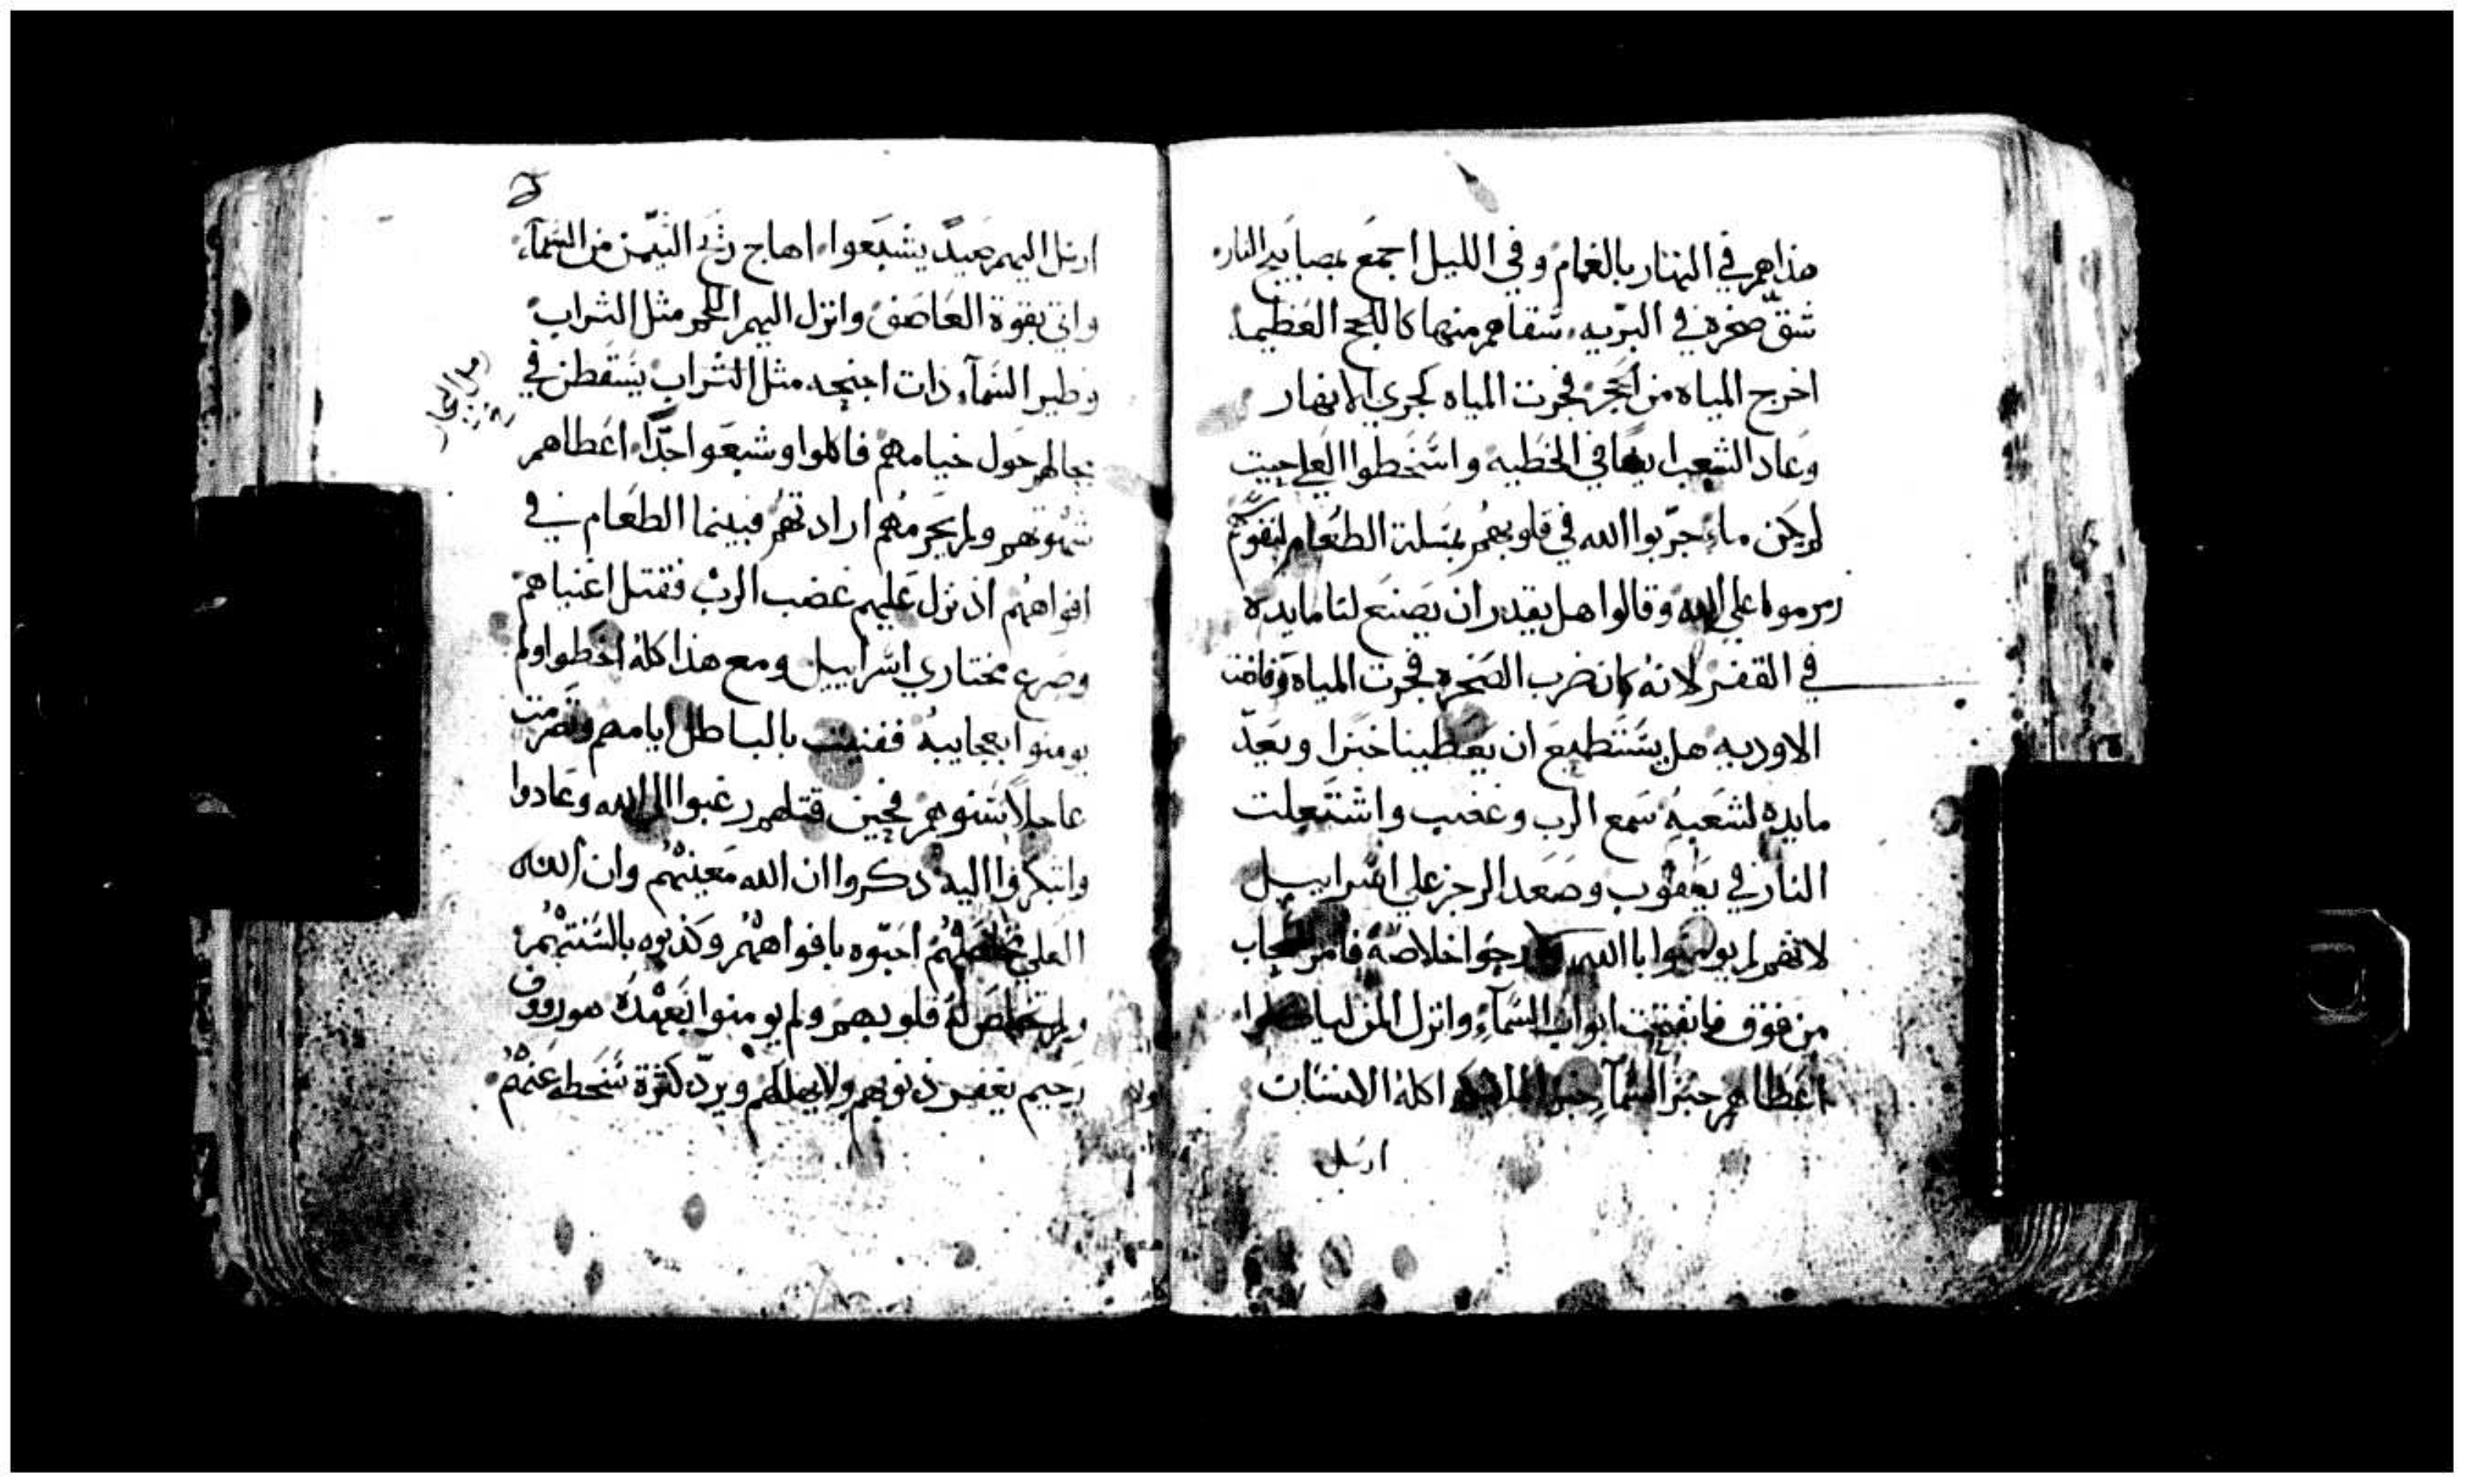 هذاهم في النهار بالغمام وفي الليل اجمع بمصابيح النار
شقّ صخره في البرّيه، سقاهم منها كاللجج العظيمه
اخرج المياه من الحجر فجرت المياه كجري الانهار
وعاد الشعب ايضا في الخطيه واسخطوا العلي حيت
لم يكن ماء، جرّبوا الله في قلوبهم بمسلة الطعام لنفوسهم
رمرموا على الله وقالوا هل يقدر ان يصنع لنا مايده
في القفر لانه كان ضرب الصخره فجرت المياه وفاضت
الاوديه هل يستطيع ان يعطينا خبزا ويعدّ
مايده لشعبه سمع الرب وغضب واشتعلت
النار في يعقوب وصعد الرجز على اسراييل
لانهم لم يومنوا باالله ولا رجوا خلاصه فامر السحاب
من فوق فانفتحت ابواب السمآء وانزل المن لياكلوا
اعطاهم خبز السمآ خبز الملايكه اكله الانسان
ارسل
ارسل اليهم صيدً يشبعوا، اهاج ريح التيمن من السمآء
واتي بقوة العاصف وانزل اليهم اللحم مثل التراب
وطير السمآء ذات اجنحه مثل التراب يسقطن في
محالهم حول خيامهم فاكلوا وشبعوا جدًّا، اعطاهم
شهوتهم ولم يحرمهم ارادتهم فبينما الطعام في
افواههم اذ نزل عليهم غضب الربّ فقتل اغنياهم
وصرع مختاري اسراييل ومع هذا كله اخطوا ولم
يومنوا بعجايبه ففنيت بالباطل ايامهم وتصرمت
عاجلاً سنوهم فحين قتلهم رغبوا الى الله وعادوا
وابتكروا اليه ذكروا ان الله معينهم وان الله
العلي مخلصهم احبّوه بافواههم وكذبوه بالسنتهم
ولم تخلص له قلوبهم ولم يومنوا بعهده هو روف
رحيم يغفر ذنوبهم ولا يهلكهم ويردّ كثرة سخطه عنهم